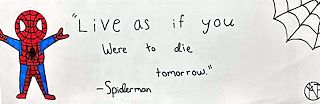 "Live as if you
were to die
tomorrow."
-Spiderman